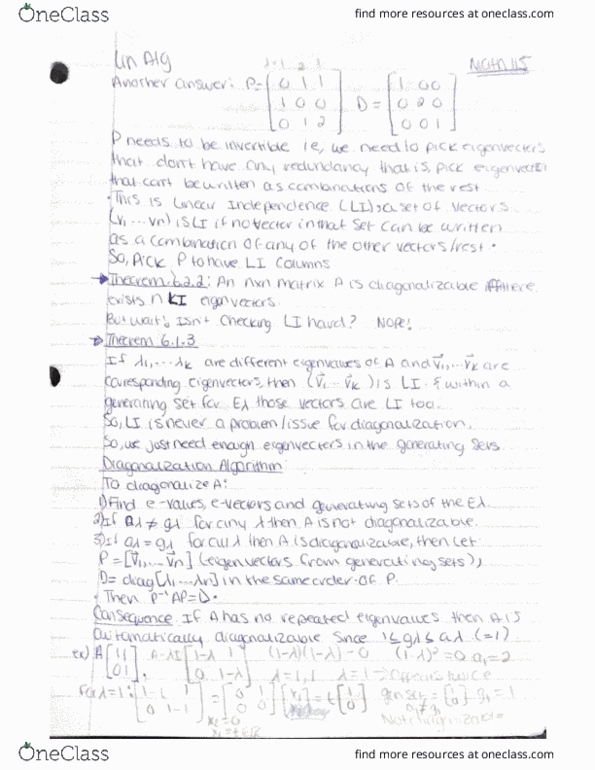 OneClass
find more resources at oneclass.com
Lin Alg
Math 115
λ=1 2 1
Another answer: P= [0 1 1 D = [1 00
1 0 0 0 2 0
0 1 2] 0 0 1]
P needs to be invertible i.e, we need to pick eigenvectors
that don't have any redundancy that is, pick eigenvectors
that can't be written as combinations of the rest
• This is Linear Independence (LI); a set of vectors
(v₁ ... vn) is LI if no vector in that set can be written
as a combination of any of the other vectors/rest.
So, Pick P to have LI columns
→ Theorem 6.2.2: An nxn matrix A is diagonalizable iff there
exists n LI eigenvectors.
But wait! Isn't checking LI hard? NOPE!
→ Theorem 6.1.3
If λ₁,...λk are different eigenvalues of A and v⃗₁,...v⃗k are
corresponding eigenvectors, then (v⃗₁...v⃗k) is LI. & within a
generating set for Eλ those vectors are LI too.
So, LI is never a problem/issue for diagonalization.
So, we just need enough eigenvectors in the generating sets.
Diagonalization Algorithm:
To diagonalize A:
1) Find e-values, e-vectors and generating sets of the Eλ.
2) If aλ ≠ gλ for any λ then A is not diagonalizable.
3) If aλ = gλ for all λ then A is diagonalizable, then let
P = [v⃗₁... v⃗n] (eigenvectors from generating sets),
D= diag[λ₁...λn] in the same order of P.
• Then P⁻¹AP=D.
Consequence: If A has no repeated eigenvalues then A is
automatically diagonalizable since 1≤gλ≤aλ (=1)
ex) A [1 1 A-λI [1-λ 1 (1-λ)(1-λ)-0 (1-λ)²=0 a₁=2
0 1] 0 1-λ] λ=1,1 λ=1 → appears twice
for λ=1: [1-1 1 = [0 1 [x₁] = t [1 gen set = [1 g₁=1
0 1-1] 0 0] 0] 0] a₁≠g₁
x₂=0
x₁=t∈ℝ
Not
OneClass
find more resources at oneclass.com